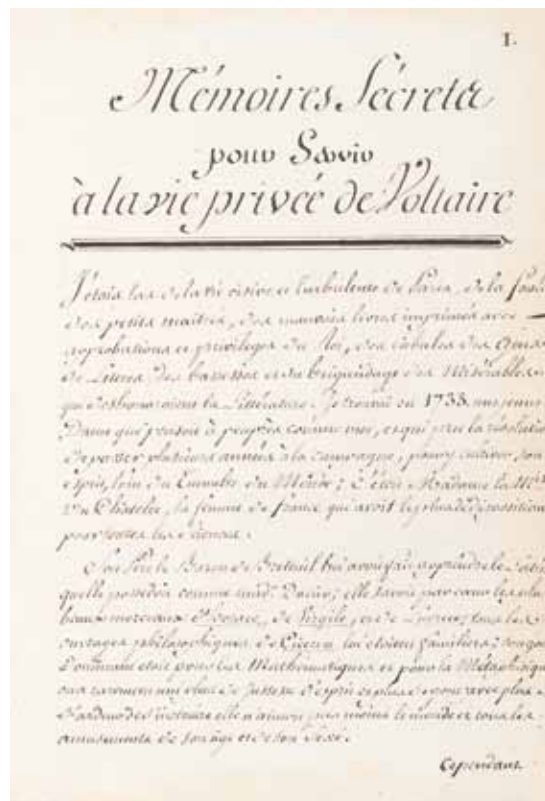 1.
Mémoires Sécrets
pour Servir
à la vie privée de Voltaire
J'étois las de la vie oisive et turbulente de Paris, de la foule
des petits maitres, des mauvais livres imprimés avec
approbations et privilèges du Roi, des cabales des Gens
de Lettres des bassesses et du brigandage des Misérables
qui deshonoroient la Littérature. Je trouvai en 1733. une jeune
Dame qui pensoit à peuprès comme moi, et qui prit la résolution
de passer plusieurs années à la campagne, pour y cultiver son
esprit, loin du tumulte du Monde; C'étoit Madame la
du Chatelet, la femme de france qui avoit le plus de disposition
pour toutes les sciences.
Son Père le Baron de Breteuil lui avoit fait apprendre le latin
quelle possedoit comme mad.e Dacier; elle savoit par cœur les plus
beaux morceaux d'horace, de Virgile, et de Lucrece; tous les
ouvrages philosophiques de Ciceron lui étoient familiers; son gout
dominant étoit pour les Mathématiques et pour la Métaphisique
on a rarement uni plus de justesse d'esprit et plus de gout avec plus
d'ardeur de s'instruire elle n'aimoit pas moins le monde et tous les
amusements de son âge et de son sexe.
Cependant